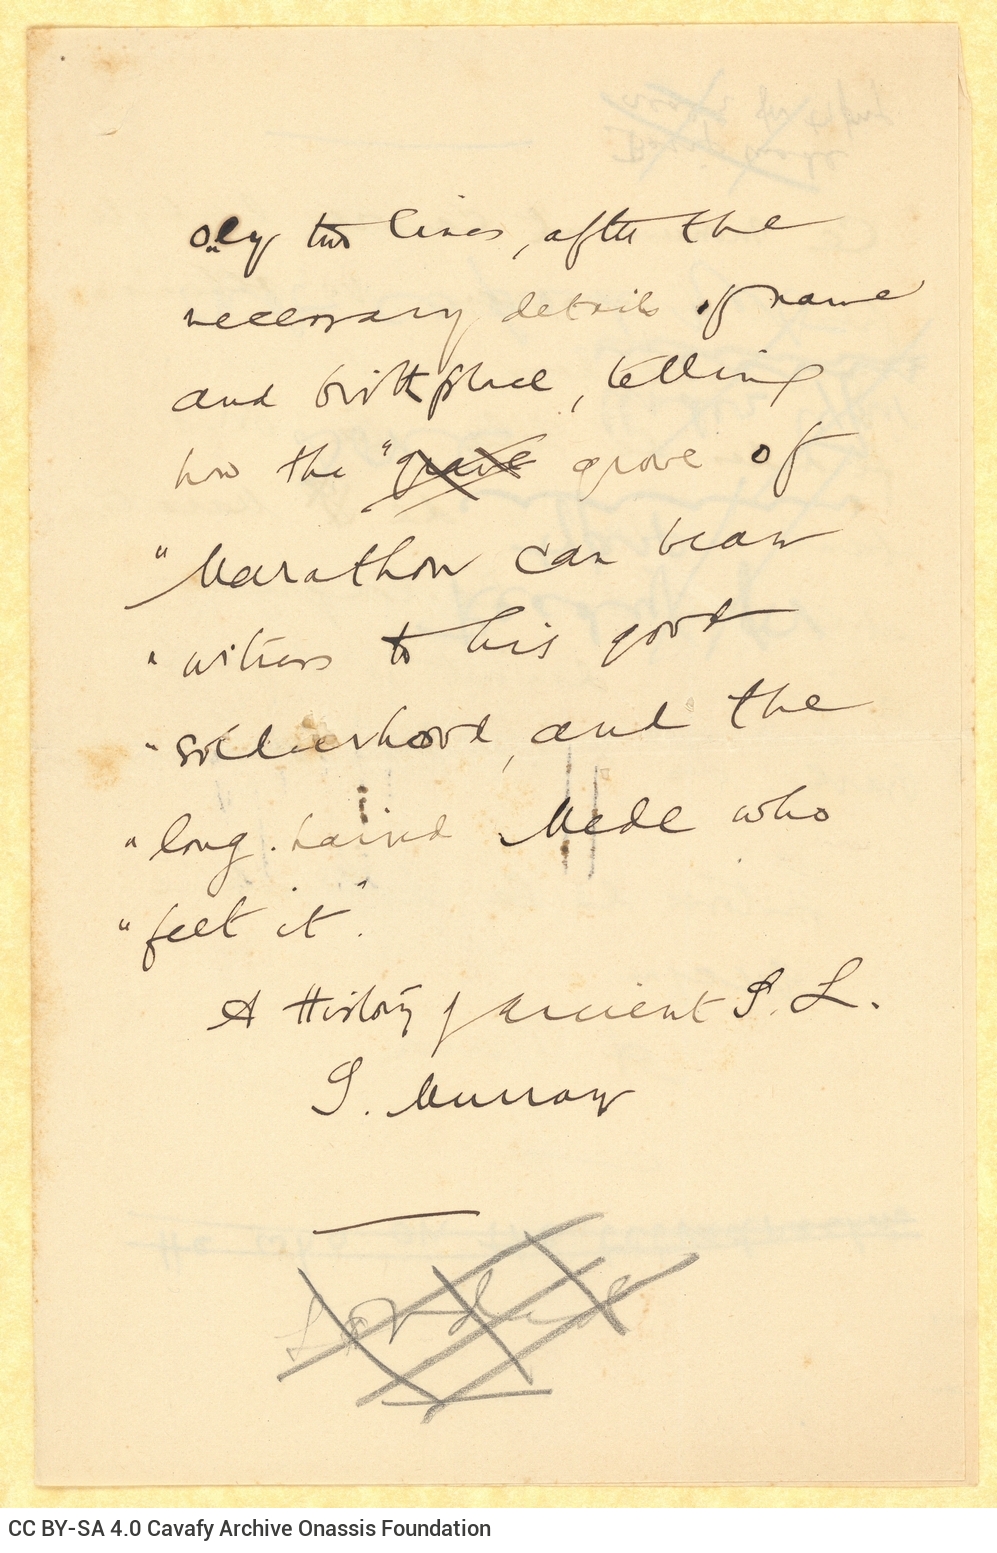 only two lines, after the
necessary details of name
and birthplace, telling
how the "grave grove of
"Marathon can bear
" witness to his good
"soldierhood, and the
"long-haired Mede who
"felt it".
A History of Ancient G. L.
G. Murray
CC BY-SA 4.0 Cavafy Archive Onassis Foundation